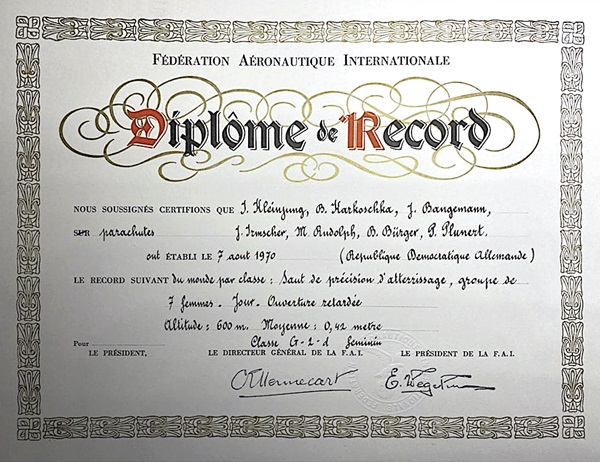 FÉDÉRATION AÉRONAUTIQUE INTERNATIONALE
Diplôme de Record
NOUS SOUSSIGNÉS CERTIFIONS QUE I. Kleinjung, B. Karkoschka, J. Bangemann,
SUR parachutes J. Irmscher, M. Rudolph, B. Bürger, P. Plunert.
ont ÉTABLI LE 7 aout 1970 (Republique Democratique Allemande)
LE RECORD SUIVANT du monde par classe : Saut de précision d'atterrissage, groupe de
7 femmes - Jour - Ouverture retardée
Altitude : 600 m. Moyenne : 0,42 metre
Pour Classe G-2-d feminin
LE PRÉSIDENT, LE DIRECTEUR GÉNÉRAL DE LA F.A.I. LE PRÉSIDENT DE LA F.A.I.